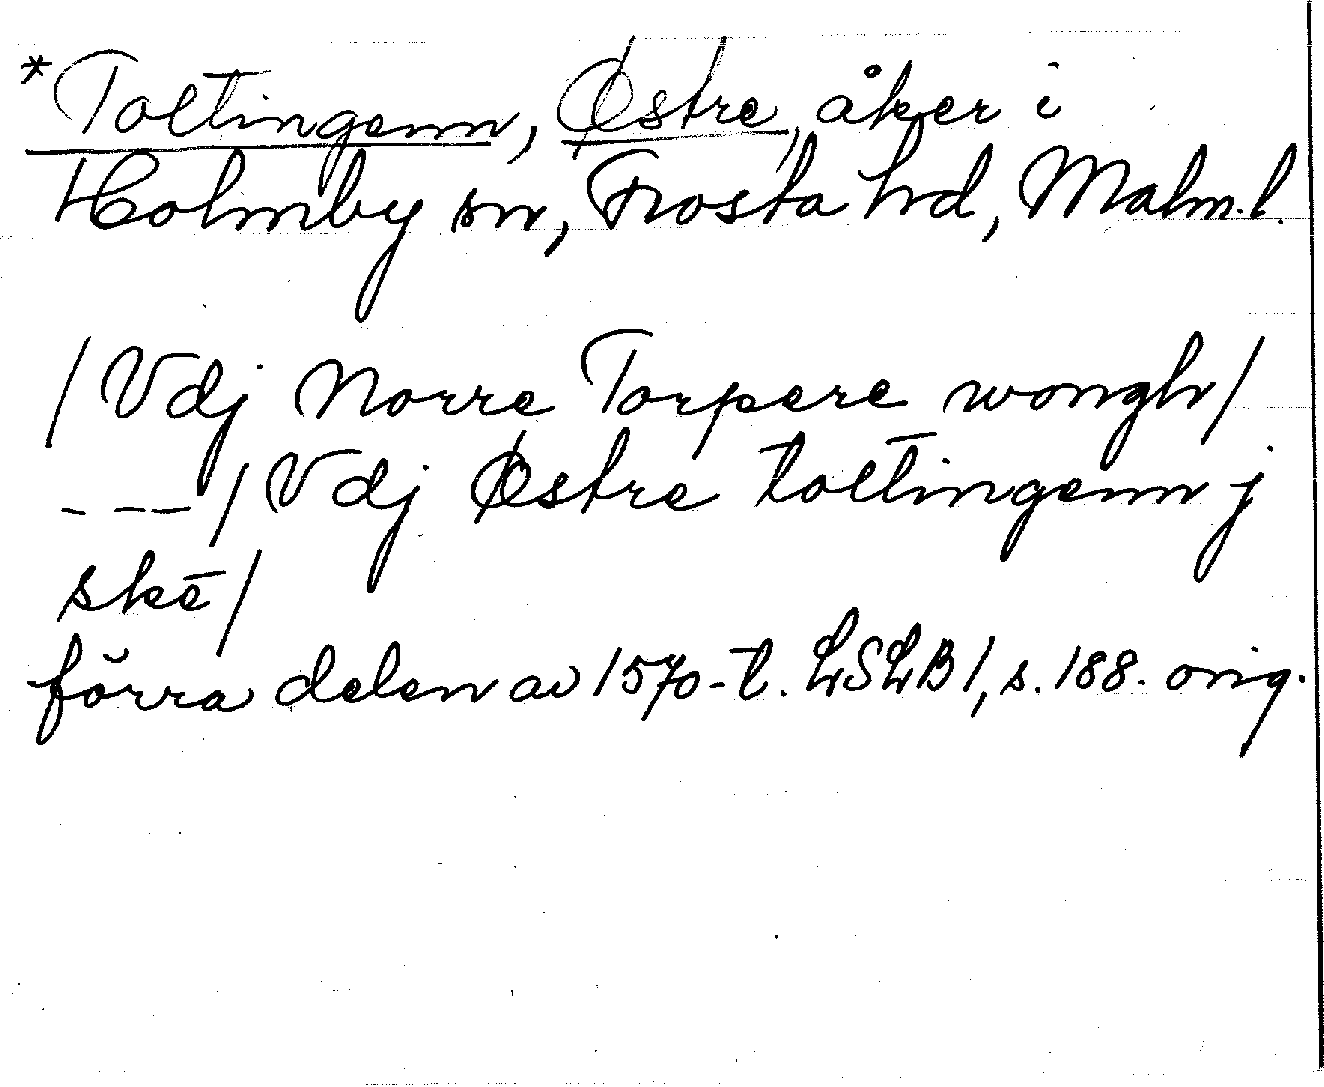 *Toltingenn, Østre, åker i
Holmby sn, Frosta hd, Malm.l.
/Vdj Norre Torpere wongh/
---/Vdj Østre toltingenn j
skē/
förra delen av 1570-t. LSLB1, s. 188. orig.